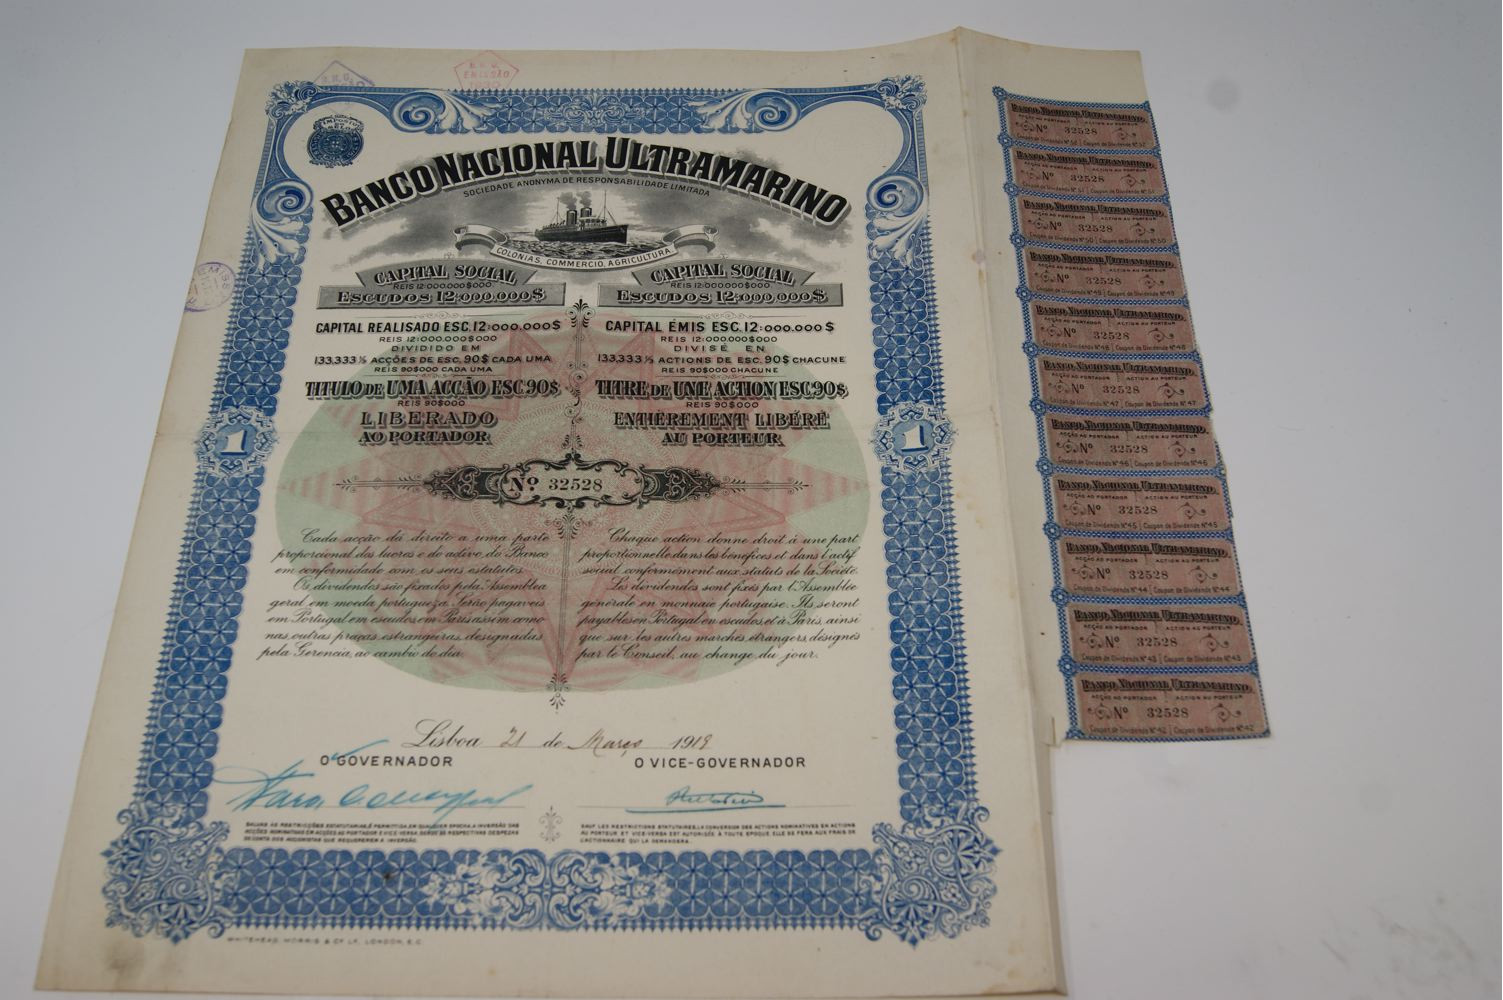 B.N.U.
EMISSÃO
IMPOSTO
BANCO NACIONAL ULTRAMARINO
SOCIEDADE ANONYMA DE RESPONSABILIDADE LIMITADA
COLONIAS, COMMERCIO, AGRICULTURA
CAPITAL SOCIAL
REIS 12:000.000$000
ESCUDOS 12:000.000$
CAPITAL REALISADO ESC. 12:000.000$
REIS 12:000.000$000
DIVIDIDO EM
133,333 ⅓ ACÇÕES DE ESC. 90$ CADA UMA
REIS 90$000 CADA UMA
TITULO DE UMA ACÇÃO ESC 90$
REIS 90$000
LIBERADO
AO PORTADOR
CAPITAL SOCIAL
REIS 12:000.000$000
ESCUDOS 12:000.000$
CAPITAL ÉMIS ESC. 12:000.000$
REIS 12:000.000$000
DIVISÉ EN
133,333 ⅓ ACTIONS DE ESC. 90$ CHACUNE
REIS 90$000 CHACUNE
TITRE DE UNE ACTION ESC 90$
REIS 90$000
ENTIÈREMENT LIBÉRÉ
AU PORTEUR
1
1
Nº 32528
Cada acção dá direito a uma parte
proporcional dos lucros e do activo, do Banco
em conformidade com os seus estatutos.
Os dividendos são fixados pela Assemblea
geral em moeda portugueza. Serão pagaveis
em Portugal em escudos, em Paris assim como
nas outras praças estrangeiras, designadas
pela Gerencia, ao cambio do dia.
Chaque action donne droit à une part
proportionnelle dans les bénefices et dans l'actif
social conformément aux statuts de la Société.
Les dividendes sont fixés par l'Assemblée
générale en monnaie portugaise. Ils seront
payables en Portugal en escudos, et à Paris, ainsi
que sur les autres marchés étrangers, désignés
par le Conseil, au change du jour.
Lisboa 21 de Março 1919
O GOVERNADOR
O VICE-GOVERNADOR
SALVAS AS RESTRICÇÕES ESTATUTARIAS, É PERMITTIDA, EM QUALQUER EPOCHA, A INVERSÃO DAS
ACÇÕES NOMINATIVAS EM ACÇÕES AO PORTADOR E VICE-VERSA, SENDO AS RESPECTIVAS DESPEZAS
DE CONTA DOS ACCIONISTAS QUE REQUEREREM A INVERSÃO.
SAUF LES RESTRICTIONS STATUTAIRES, LA CONVERSION DES ACTIONS NOMINATIVES EN ACTIONS
AU PORTEUR ET VICE-VERSA EST AUTORISÉE À TOUTE ÉPOQUE. ELLE SE FERA AUX FRAIS DE
L'ACTIONNAIRE QUI LA DEMANDERA.
WHITEHEAD, MORRIS & Cº Lº, LONDON, E.C.
BANCO NACIONAL ULTRAMARINO.
ACÇÃO AO PORTADOR ACTION AU PORTEUR
Nº 32528
Coupon de Dividendo Nº 52 Coupon de Dividende Nº 52
BANCO NACIONAL ULTRAMARINO.
ACÇÃO AO PORTADOR ACTION AU PORTEUR
Nº 32528
Coupon de Dividendo Nº 51 Coupon de Dividende Nº 51
BANCO NACIONAL ULTRAMARINO.
ACÇÃO AO PORTADOR ACTION AU PORTEUR
Nº 32528
Coupon de Dividendo Nº 50 Coupon de Dividende Nº 50
BANCO NACIONAL ULTRAMARINO.
ACÇÃO AO PORTADOR ACTION AU PORTEUR
Nº 32528
Coupon de Dividendo Nº 49 Coupon de Dividende Nº 49
BANCO NACIONAL ULTRAMARINO.
ACÇÃO AO PORTADOR ACTION AU PORTEUR
Nº 32528
Coupon de Dividendo Nº 48 Coupon de Dividende Nº 48
BANCO NACIONAL ULTRAMARINO.
ACÇÃO AO PORTADOR ACTION AU PORTEUR
Nº 32528
Coupon de Dividendo Nº 47 Coupon de Dividende Nº 47
BANCO NACIONAL ULTRAMARINO.
ACÇÃO AO PORTADOR ACTION AU PORTEUR
Nº 32528
Coupon de Dividendo Nº 46 Coupon de Dividende Nº 46
BANCO NACIONAL ULTRAMARINO.
ACÇÃO AO PORTADOR ACTION AU PORTEUR
Nº 32528
Coupon de Dividendo Nº 45 Coupon de Dividende Nº 45
BANCO NACIONAL ULTRAMARINO.
ACÇÃO AO PORTADOR ACTION AU PORTEUR
Nº 32528
Coupon de Dividendo Nº 44 Coupon de Dividende Nº 44
BANCO NACIONAL ULTRAMARINO.
ACÇÃO AO PORTADOR ACTION AU PORTEUR
Nº 32528
Coupon de Dividendo Nº 43 Coupon de Dividende Nº 43
BANCO NACIONAL ULTRAMARINO.
ACÇÃO AO PORTADOR ACTION AU PORTEUR
Nº 32528
Coupon de Dividendo Nº 42 Coupon de Dividende Nº 42